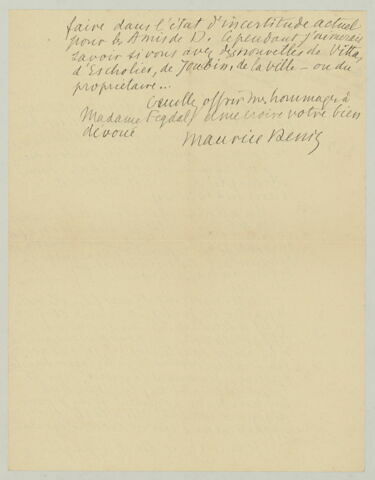 faire dans l'état d'incertitude actuel
pour les Amis de D. Cependant j'aimerais
savoir si vous avez des nouvelles de Vitta,
d'Escholier, de Joubin, de la ville – ou du
propriétaire...
Veuillez offrir mes hommages à
Madame Figdal, et me croire votre bien
dévoué
Maurice Denis